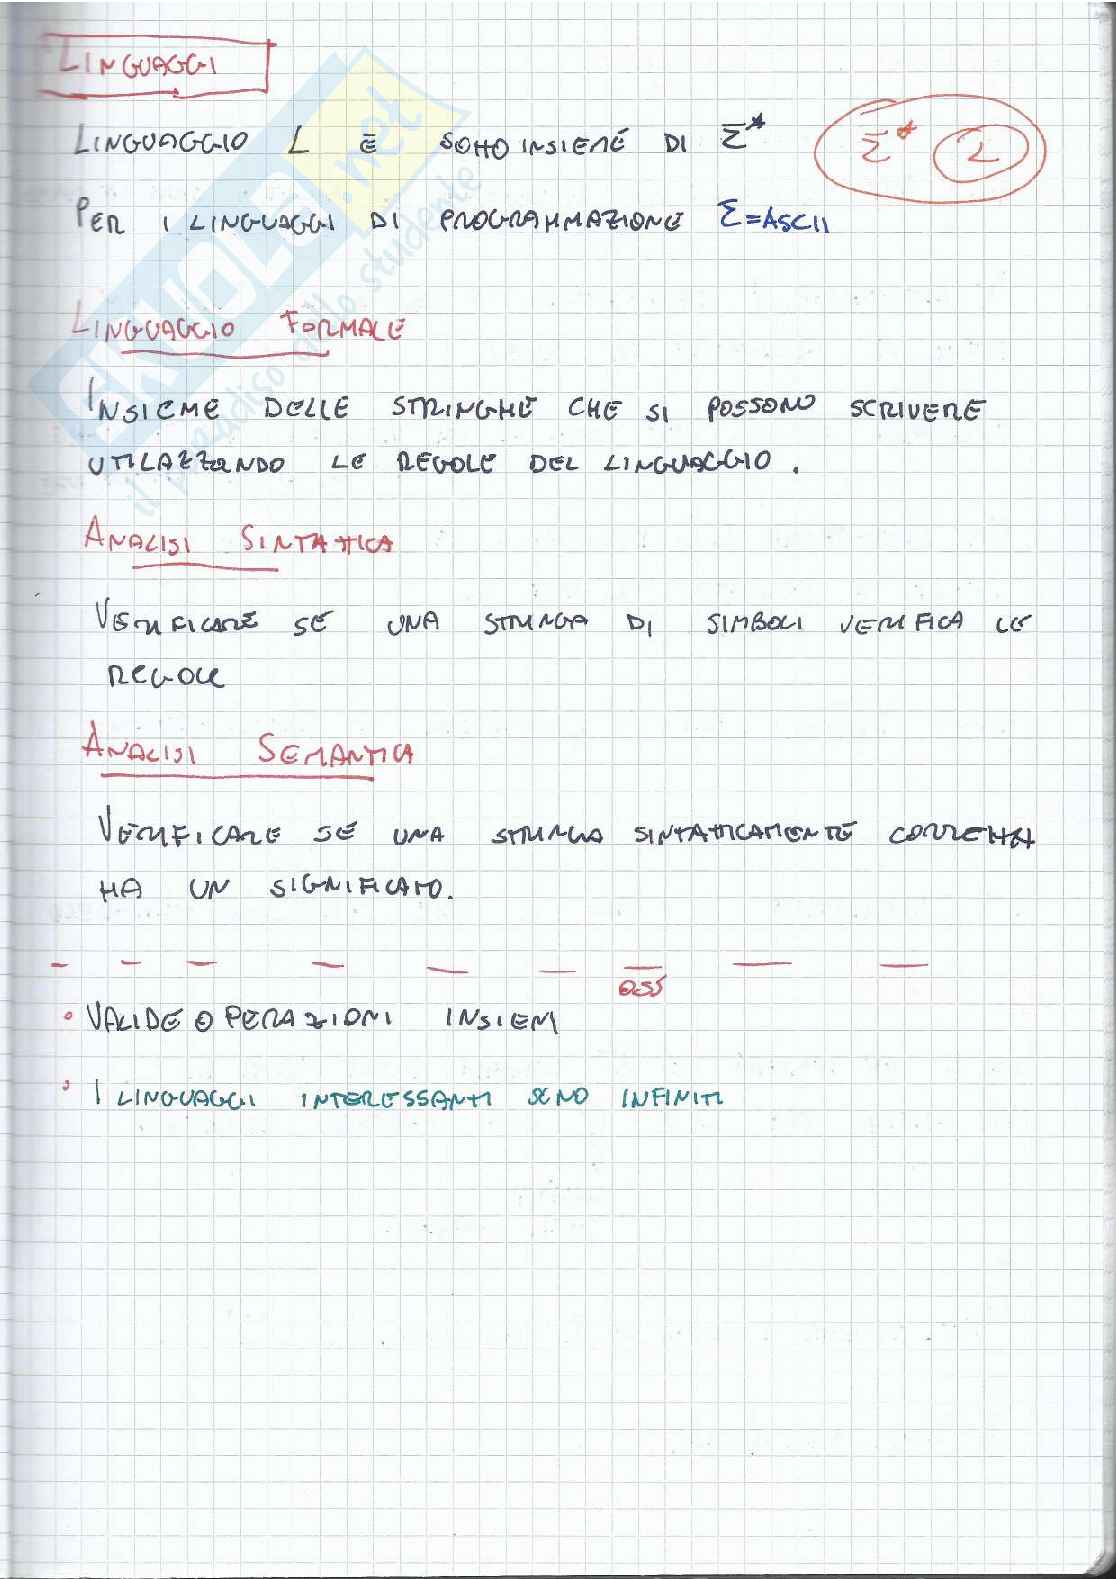 LINGUAGGI
LINGUAGGIO L È SOTTOINSIEME DI Σ*
Σ* L
PER I LINGUAGGI DI PROGRAMMAZIONE Σ=ASCII
LINGUAGGIO FORMALE
INSIEME DELLE STRINGHE CHE SI POSSONO SCRIVERE
UTILAZZANDO LE REGOLE DEL LINGUAGGIO.
ANALISI SINTATTICA
VERIFICARE SE UNA STRINGA DI SIMBOLI VERIFICA LE
REGOLE
ANALISI SEMANTICA
VERIFICARE SE UNA STRINGA SINTATTICAMENTE CORRETTA
HA UN SIGNIFICATO.
OSS
• VALIDE OPERAZIONI INSIEMI
• I LINGUAGGI INTERESSANTI SONO INFINITI
SKUOLA.net
il paradiso dello studente